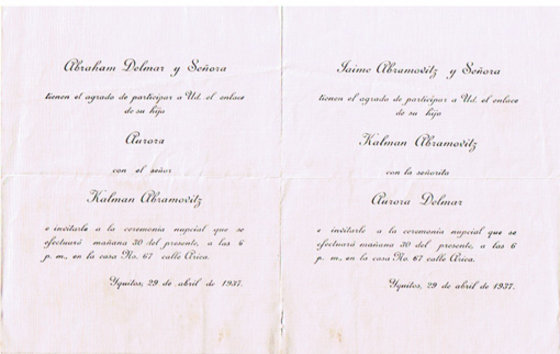 Abraham Delmar y Señora
tienen el agrado de participar a Ud. el enlace
de su hija
Aurora
con el señor
Kalman Abramovitz
e invitarle a la ceremonia nupcial que se
efectuará mañana 30 del presente, a las 6
p. m., en la casa No. 67 calle Arica.
Yquitos, 29 de abril de 1937.
Jaime Abramovitz y Señora
tienen el agrado de participar a Ud. el enlace
de su hijo
Kalman Abramovitz
con la señorita
Aurora Delmar
e invitarle a la ceremonia nupcial que se
efectuará mañana 30 del presente, a las 6
p. m., en la casa No. 67 calle Arica.
Yquitos, 29 de abril de 1937.